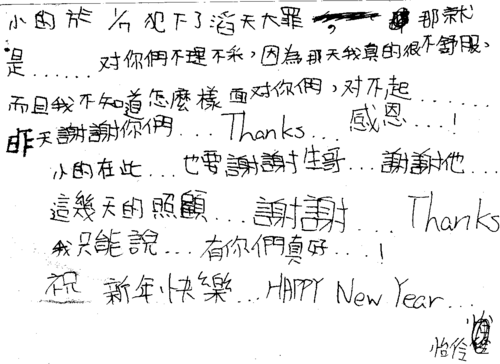 小的於 1/1 犯下了滔天大罪 , 那就
是......对你們不理不采,因為那天我真的很不舒服,
而且我不知道怎麼樣面对你們,对不起......
昨天謝謝你們... Thanks... 感恩...!
小的在此...也要謝謝生哥...謝謝他...
這幾天的照顧...謝謝... Thanks
我只能說...有你們真好...!
祝 新年快樂...HAPPY New Year...
怡伶